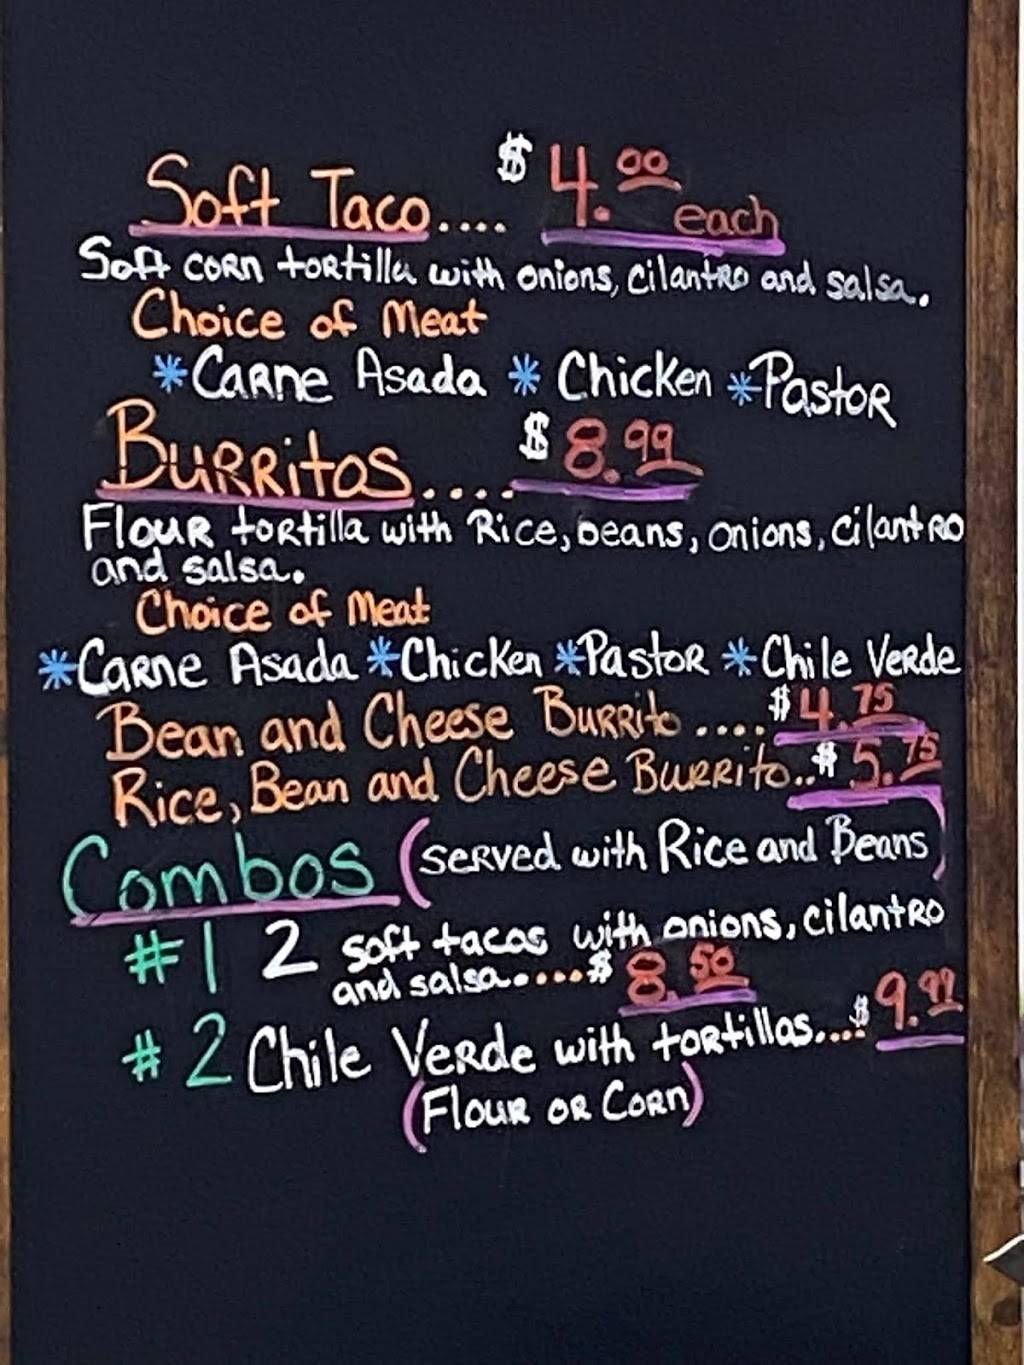 Soft Taco.... $4.00 each
Soft corn tortilla with onions, cilantro and salsa.
Choice of Meat
*Carne Asada *Chicken *Pastor
Burritos.... $8.99
Flour tortilla with Rice, beans, onions, cilantro
and salsa.
Choice of Meat
*Carne Asada *Chicken *Pastor *Chile Verde
Bean and Cheese Burrito.... $4.75
Rice, Bean and Cheese Burrito.. $5.75
Combos (served with Rice and Beans)
#1 2 soft tacos with onions, cilantro
and salsa.... $8.50
#2 Chile Verde with tortillas.... $9.99
(Flour or Corn)